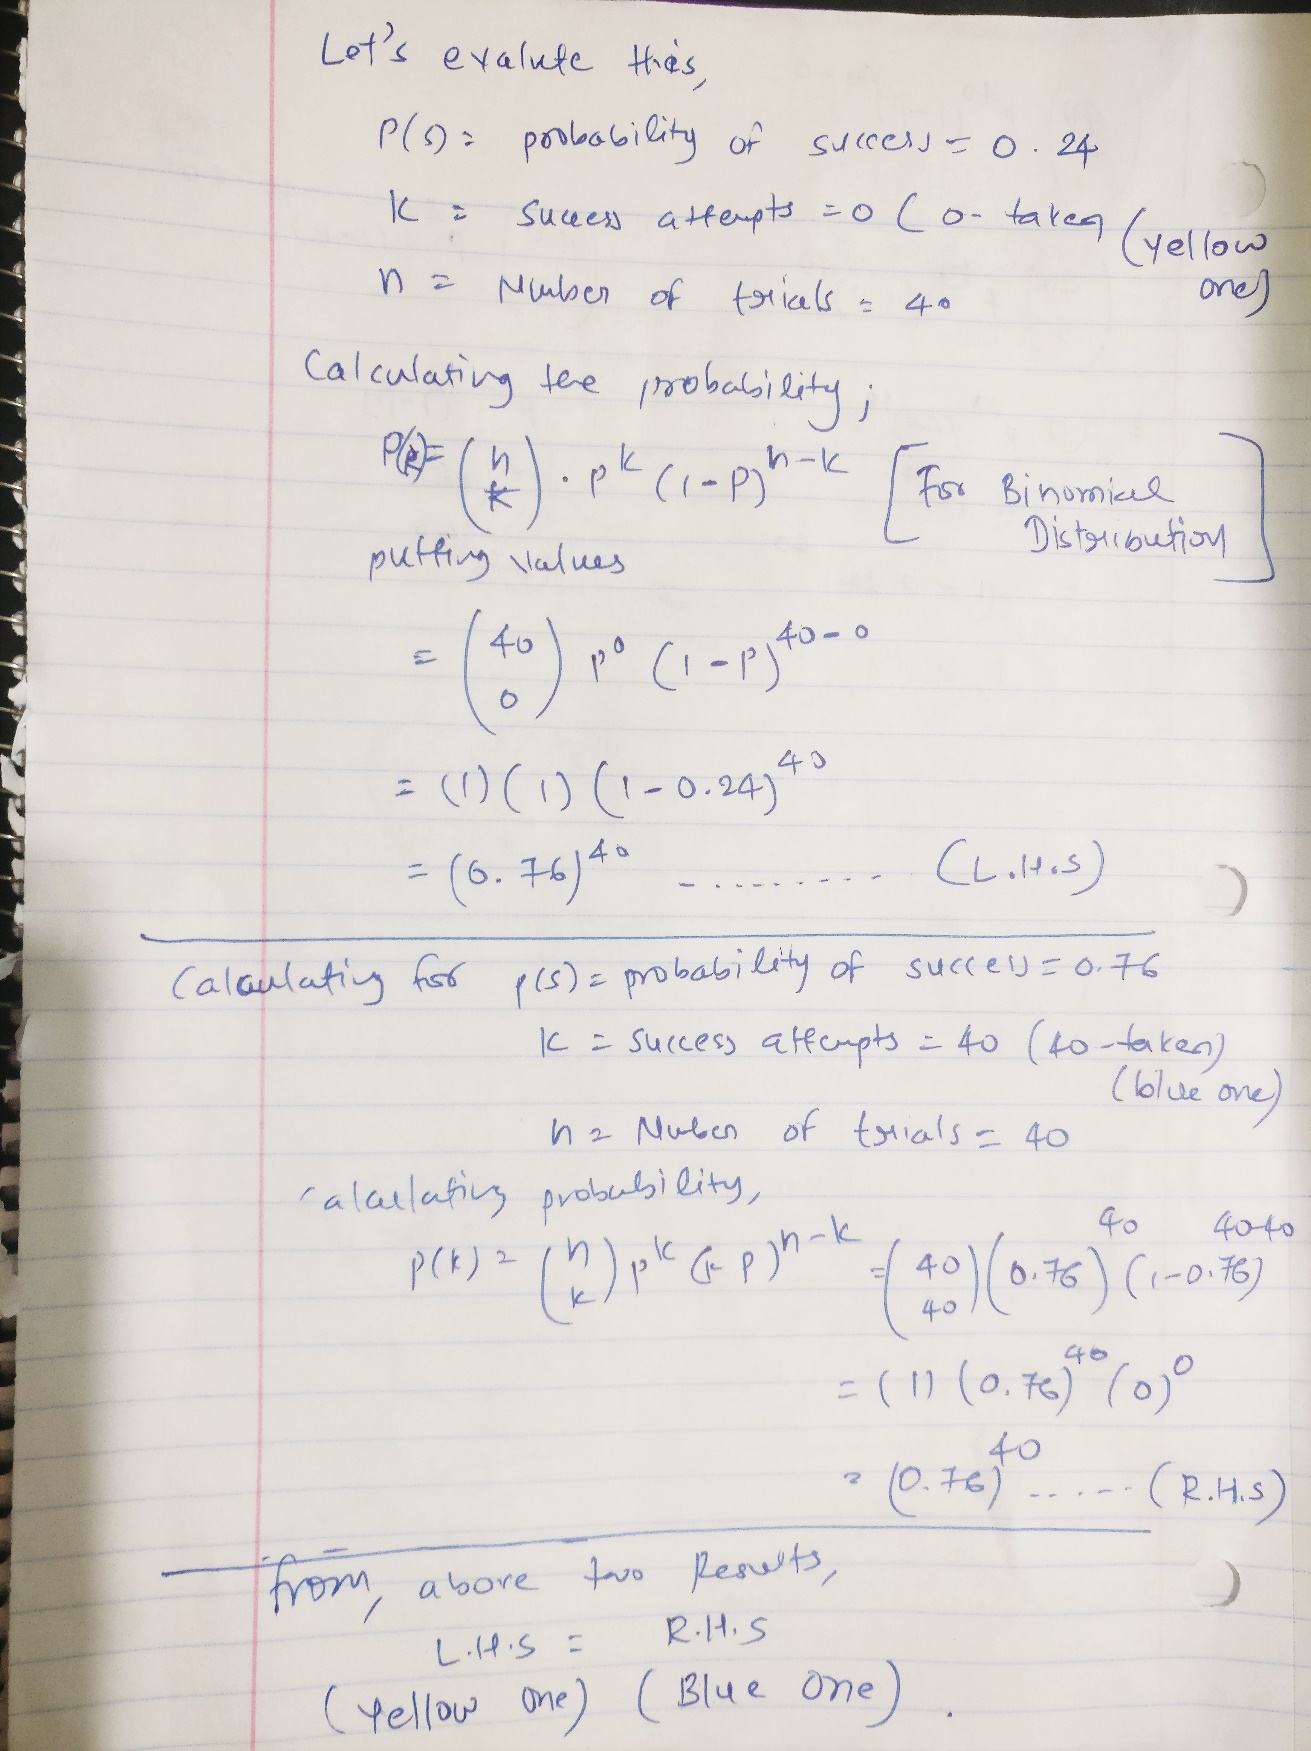 Let's evalute this,
P(s) = probability of success = 0.24
K = Success attempts = 0 (0- taken (yellow one)
n = Number of trials = 40
Calculating the probability;
P(k) = (n k) . p^k (1-p)^n-k [For Binomial Distribution]
putting values
= (40 0) p^0 (1-p)^40-0
= (1) (1) (1-0.24)^40
= (0.76)^40 .......... (L.H.S)
Calculating for p(s) = probability of success = 0.76
K = success attempts = 40 (40-taken) (blue one)
n = Number of trials = 40
calculating probability,
p(k) = (n k) p^k (1-p)^n-k = (40 40) (0.76)^40 (1-0.76)^40-40
= (1) (0.76)^40 (0)^0
= (0.76)^40 ...... (R.H.S)
from, above two Results,
L.H.S = R.H.S
(Yellow One) (Blue One).